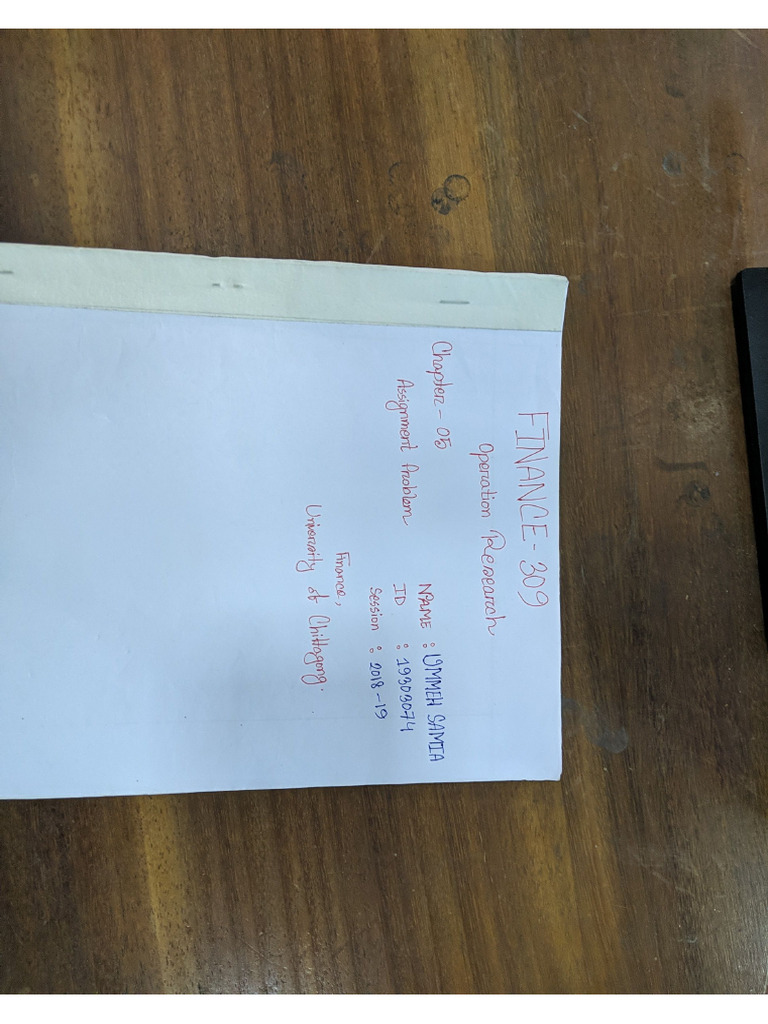 FINANCE - 309
Operation Research
Chapter - 05
Assignment Problem
NAME : UMMEH SAMIA
ID : 19303074
Session : 2018-19
Finance,
University of Chittagong.